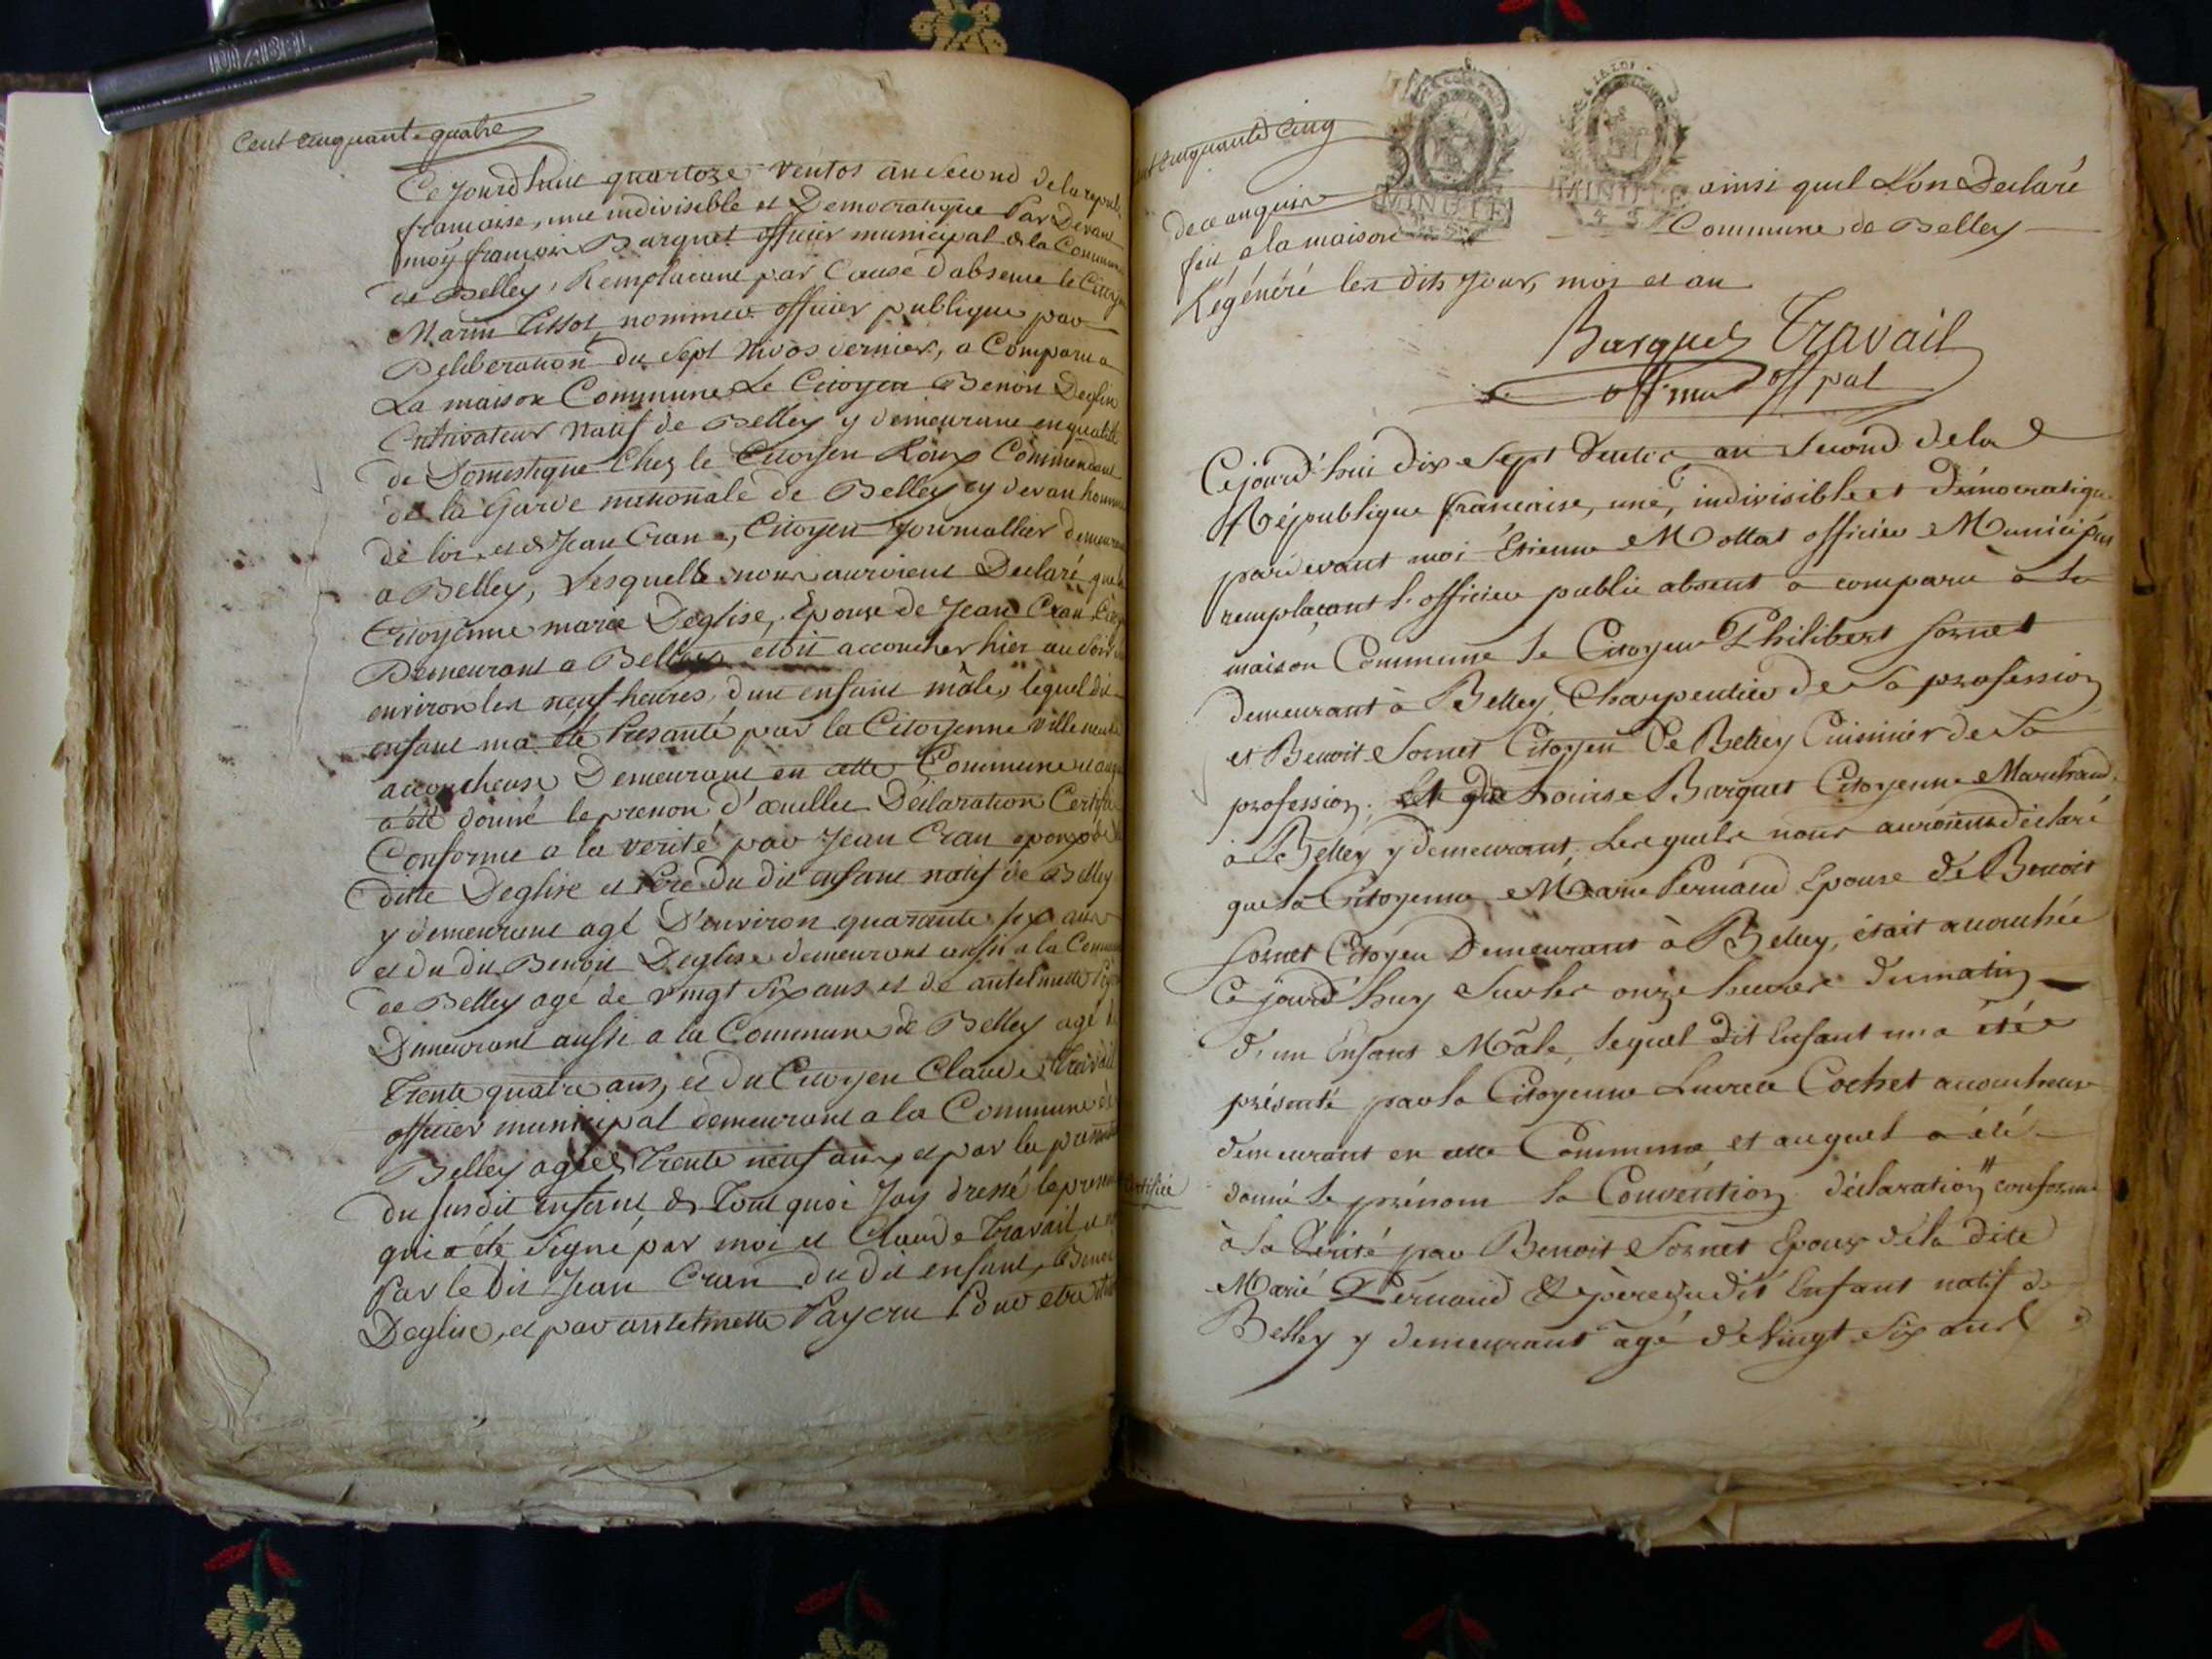 Cent cinquante quatre
Ce Jourdhuit quartoze ventos an second de la republi
francaise, une indivisible et Democratique Par Devant
moy francois Barquet officier municipal de la Commune
de Belley, Remplacant par Cause d'absence le Citoyen
Marin Tissot nommée officier publique par
Deliberation du sept Nivos dernier, a Comparu a
La maison Commune Le Citoyen Benoit Deglise
Cultivateur natif de Belley y demeurant en qualité
de Domestique Chez le Citoyen Roux Commendant
de la Garde nationalle de Belley
de loi et de Jean Cran, Citoyen Journallier demeurant
a Belley, Lesquelle nous auroient Declaré que la
Citoyenne marie Deglise, Epouse de Jean Cran
Demeurant a Belley etoit accoucher hier au soir
environ les neuf heures, d'un enfant mâle, lequel dit
enfant ma été Presanté par la Citoyenne Villeneuve
accoucheuse Demeurant en cette Commune
a été donné le prenon d'œuillee Déclaration Certifié
Conforme a la verité par Jean Cran epoux de
ditte Deglise et Père du dit enfant natif de Belley
y demeurant agé D'environ quarante six ans
et du dit Benoit Deglise demeurant aussi a la Commune
de Belley agé de vingt six ans et de antelmette
Demeurant aussi a la Commune de Belley agé
Trente quatre ans, et du Citoyen Claude Travail
officier municipal demeurant a la Commune de
Belley agée Trente neuf ans, et par la
du susdit enfant de Tout quoi Jay dressé le
qui a été signé par moi et Claude Travail
Par le Dit Jean Cran du dit enfant, Benoit
Deglise, et par antelmette Paycru Pour etre
cent cinquante cinq
MINUTE MINUTE
de ce anquis ainsi quil L'on Declaré
fait a la maison Commune de Belley
Régénéré les dits jour, mois et an
Barquet Travail
off mu off pal
Cejourd'hui dix sept an second de la
République francaise, une, indivisible et Démocratique
pardevant moi Étienne Mollat officier Municipal
remplaçant l'officier public absent a comparu à la
maison Commune le Citoyen Philibert Sornet
demeurant à Belley Charpentier de sa profession
et Benoit Sornet Citoyen De Belley Cuisinier de sa
profession. Et de Louise Barquet Citoyenne Marchand
à Belley y demeurant. Lesquels nous auroient déclaré
que la Citoyenne Marie Pernaud Epouse de Benoit
Sornet Citoyen Demeurant à Belley, était accouchée
Ce jourd'huy sur les onze heures du matin
d'un Enfant Mâle, lequel dit Enfant m'a étée
présenté par la Citoyenne Lucrece Cochet accoucheuse
demeurant en cette Commune et auquel a été
donné le prénom la Convention. déclaration conforme
Certifiée
à la Vérité par Benoit Sornet Epoux de la dite
Marie Pernaud & père du dit Enfant natif de
Belley y demeurant agé de Vingt six ans